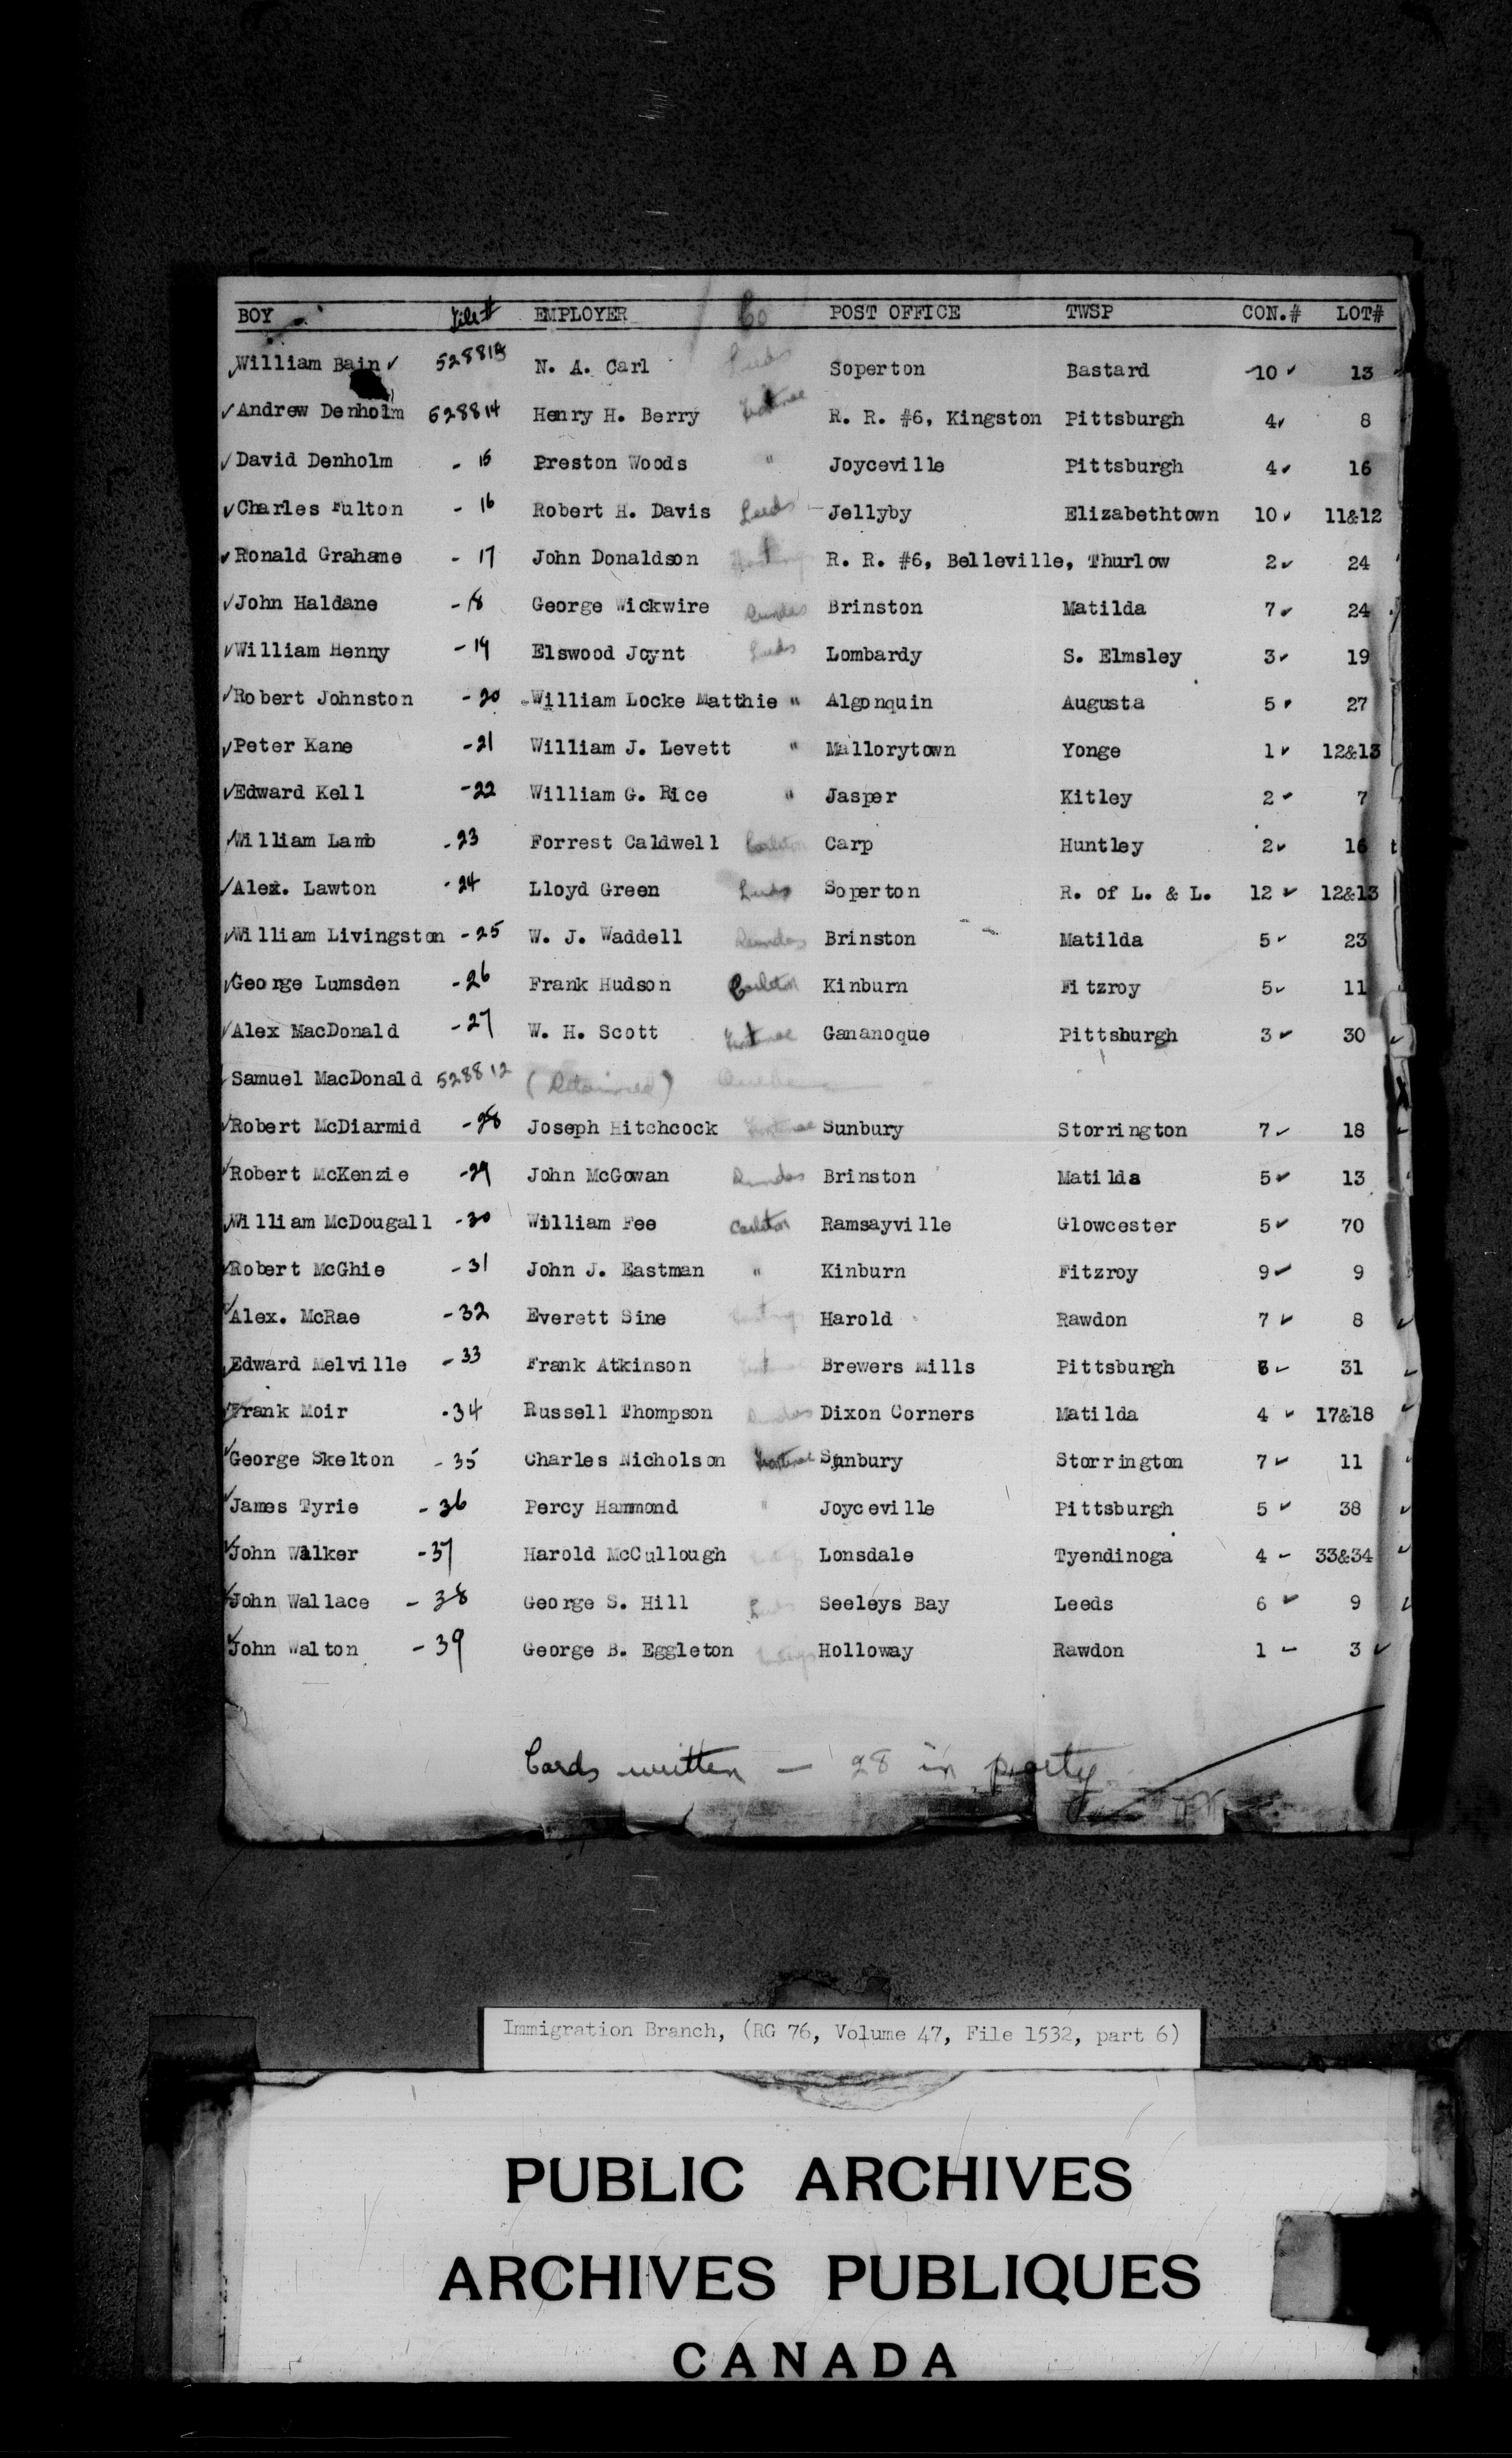 BOY File# EMPLOYER Co POST OFFICE TWSP CON.# LOT#
William Bain 528813 N. A. Carl Leeds Soperton Bastard 10 13
Andrew Denholm 528814 Henry H. Berry Frontenac R. R. #6, Kingston Pittsburgh 4 8
David Denholm - 15 Preston Woods " Joyceville Pittsburgh 4 16
Charles Fulton - 16 Robert H. Davis Leeds Jellyby Elizabethtown 10 11&12
Ronald Grahame - 17 John Donaldson Hastings R. R. #6, Belleville, Thurlow 2 24
John Haldane - 18 George Wickwire Dundas Brinston Matilda 7 24
William Henny - 19 Elswood Joynt Leeds Lombardy S. Elmsley 3 19
Robert Johnston - 20 William Locke Matthie " Algonquin Augusta 5 27
Peter Kane - 21 William J. Levett " Mallorytown Yonge 1 12&13
Edward Kell - 22 William G. Rice " Jasper Kitley 2 7
William Lamb - 23 Forrest Caldwell Carleton Carp Huntley 2 16
Alex. Lawton - 24 Lloyd Green Leeds Soperton R. of L. & L. 12 12&13
William Livingston - 25 W. J. Waddell Dundas Brinston Matilda 5 23
George Lumsden - 26 Frank Hudson Carleton Kinburn Fitzroy 5 11
Alex MacDonald - 27 W. H. Scott Frontenac Gananoque Pittsburgh 3 30
Samuel MacDonald 528812 (Detained) Quebec
Robert McDiarmid - 28 Joseph Hitchcock Frontenac Sunbury Storrington 7 18
Robert McKenzie - 29 John McGowan Dundas Brinston Matilda 5 13
William McDougall - 30 William Fee Carleton Ramsayville Glowcester 5 70
Robert McGhie - 31 John J. Eastman " Kinburn Fitzroy 9 9
Alex. McRae - 32 Everett Sine Hastings Harold Rawdon 7 8
Edward Melville - 33 Frank Atkinson Frontenac Brewers Mills Pittsburgh 31
Frank Moir - 34 Russell Thompson Dundas Dixon Corners Matilda 4 17&18
George Skelton - 35 Charles Nicholson Frontenac Sunbury Storrington 7 11
James Tyrie - 36 Percy Hammond " Joyceville Pittsburgh 5 38
John Walker - 37 Harold McCullough Lonsdale Tyendinoga 4 33&34
John Wallace - 38 George S. Hill Leeds Seeleys Bay Leeds 6 9
John Walton - 39 George B. Eggleton Hastings Holloway Rawdon 1 3
Cards written — 28 in party
Immigration Branch, (RG 76, Volume 47, File 1532, part 6)
PUBLIC ARCHIVES
ARCHIVES PUBLIQUES
CANADA